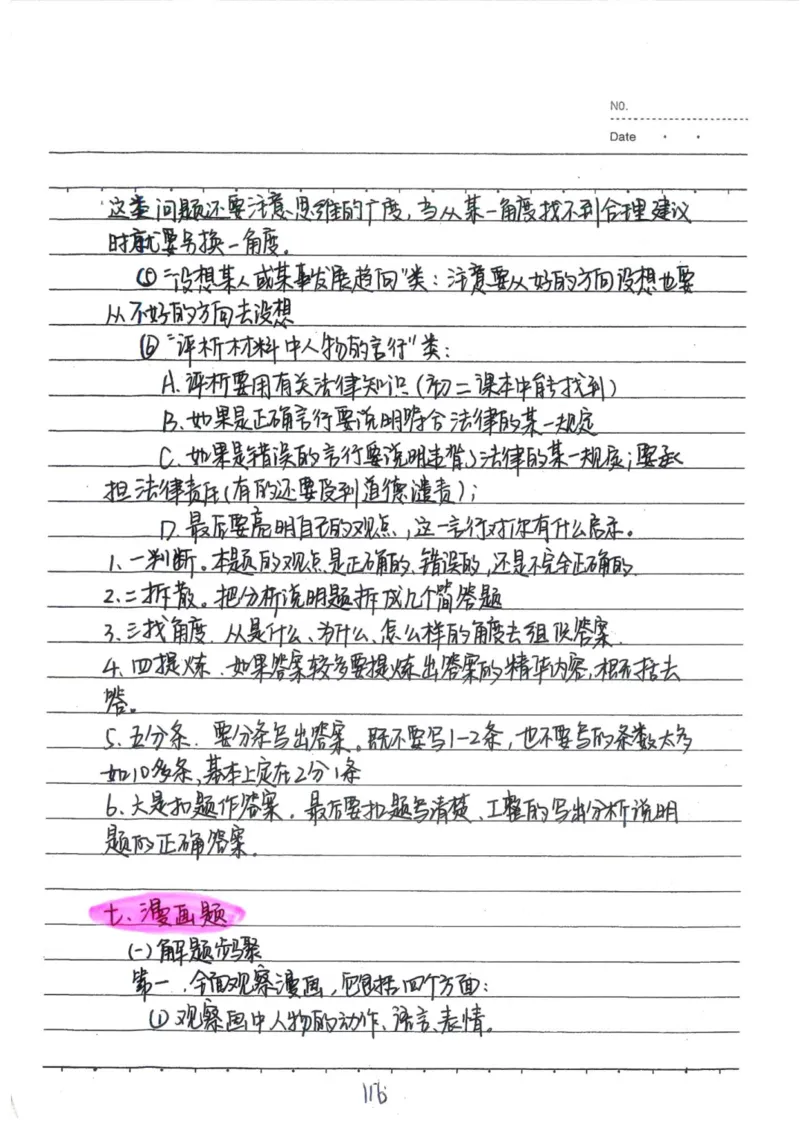 NO.
Date
这类问题还要注意思维的广度,当从某一角度找不到合理建议
时就要另换一角度。
⑤“设想某人或某事发展趋向”类:注意要从好的方向设想也要
从不好的方向去设想
⑥“评析材料中人物的言行”类:
A.评析要用有关法律知识(初二课本中能找到)
B.如果是正确言行要说明符合法律的某一规定
C.如果是错误的言行要说明违背法律的某一规定;要承
担法律责任(有的还要受到道德谴责);
D.最后要亮明自己的观点,这一言行对你有什么启示。
1.一判断。本题的观点是正确的、错误的,还是不完全正确的.
2.二拆散。把分析说明题拆成几个简答题
3.三找角度.从是什么、为什么、怎么样的角度去组织答案.
4.四提炼.如果答案较多要提炼出答案的精华内容,概括去
答。
5.五分条.要分条写出答案。既不要写1-2条,也不要写的条数太多
如10多条,基本上定在2分1条
6.六是扣题作答案.最后要扣题写清楚、工整的写出分析说明
题的正确答案.
七、漫画题
(一)解题步骤
第一.全面观察漫画,包括四个方面:
①观察画中人物的动作、语言、表情。
116